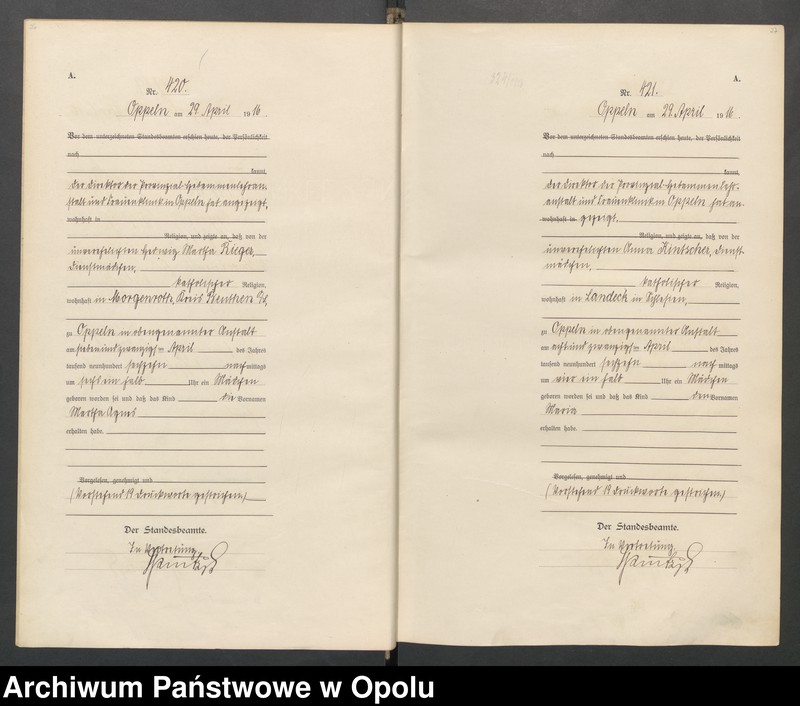 A.
Nr. 420.
Oppeln am 29. April 1916
Vor dem unterzeichneten Standesbeamten erschien heute, der Persönlichkeit
nach
kannt,
der Direktor der Provinzial-Hebammenlehran-
stalt und Frauenklinik in Oppeln hat angezeigt,
wohnhaft in
Religion, und zeigte an, daß von der
unverehelichten Hedwig Martha Rieger,
Dienstmädchen,
katholischer Religion,
wohnhaft in Morgenroth, Kreis Beuthen O/S,
zu Oppeln in obengenannter Anstalt
am siebenundzwanzigsten April des Jahres
tausend neunhundert sechzehn nachmittags
um sechs ein halb Uhr ein Mädchen
geboren worden sei und daß das Kind die Vornamen
Martha Agnes
erhalten habe.
Vorgelesen, genehmigt und
(Vorstehend 19 Druckworte gestrichen.)
Der Standesbeamte.
In Vertretung
A.
Nr. 421.
Oppeln am 29. April 1916
Vor dem unterzeichneten Standesbeamten erschien heute, der Persönlichkeit
nach
kannt,
der Direktor der Provinzial-Hebammenlehr-
anstalt und Frauenklinik in Oppeln hat an-
wohnhaft in gezeigt.
Religion, und zeigte an, daß von der
unverehelichten Anna Hentschel, Dienst-
mädchen,
katholischer Religion,
wohnhaft in Landeck in Schlesien,
zu Oppeln in obengenannter Anstalt
am achtundzwanzigsten April des Jahres
tausend neunhundert sechzehn nachmittags
um vier ein halb Uhr ein Mädchen
geboren worden sei und daß das Kind den Vornamen
Maria
erhalten habe.
Vorgelesen, genehmigt und
(Vorstehend 19 Druckworte gestrichen.)
Der Standesbeamte.
In Vertretung
Archiwum Państwowe w Opolu